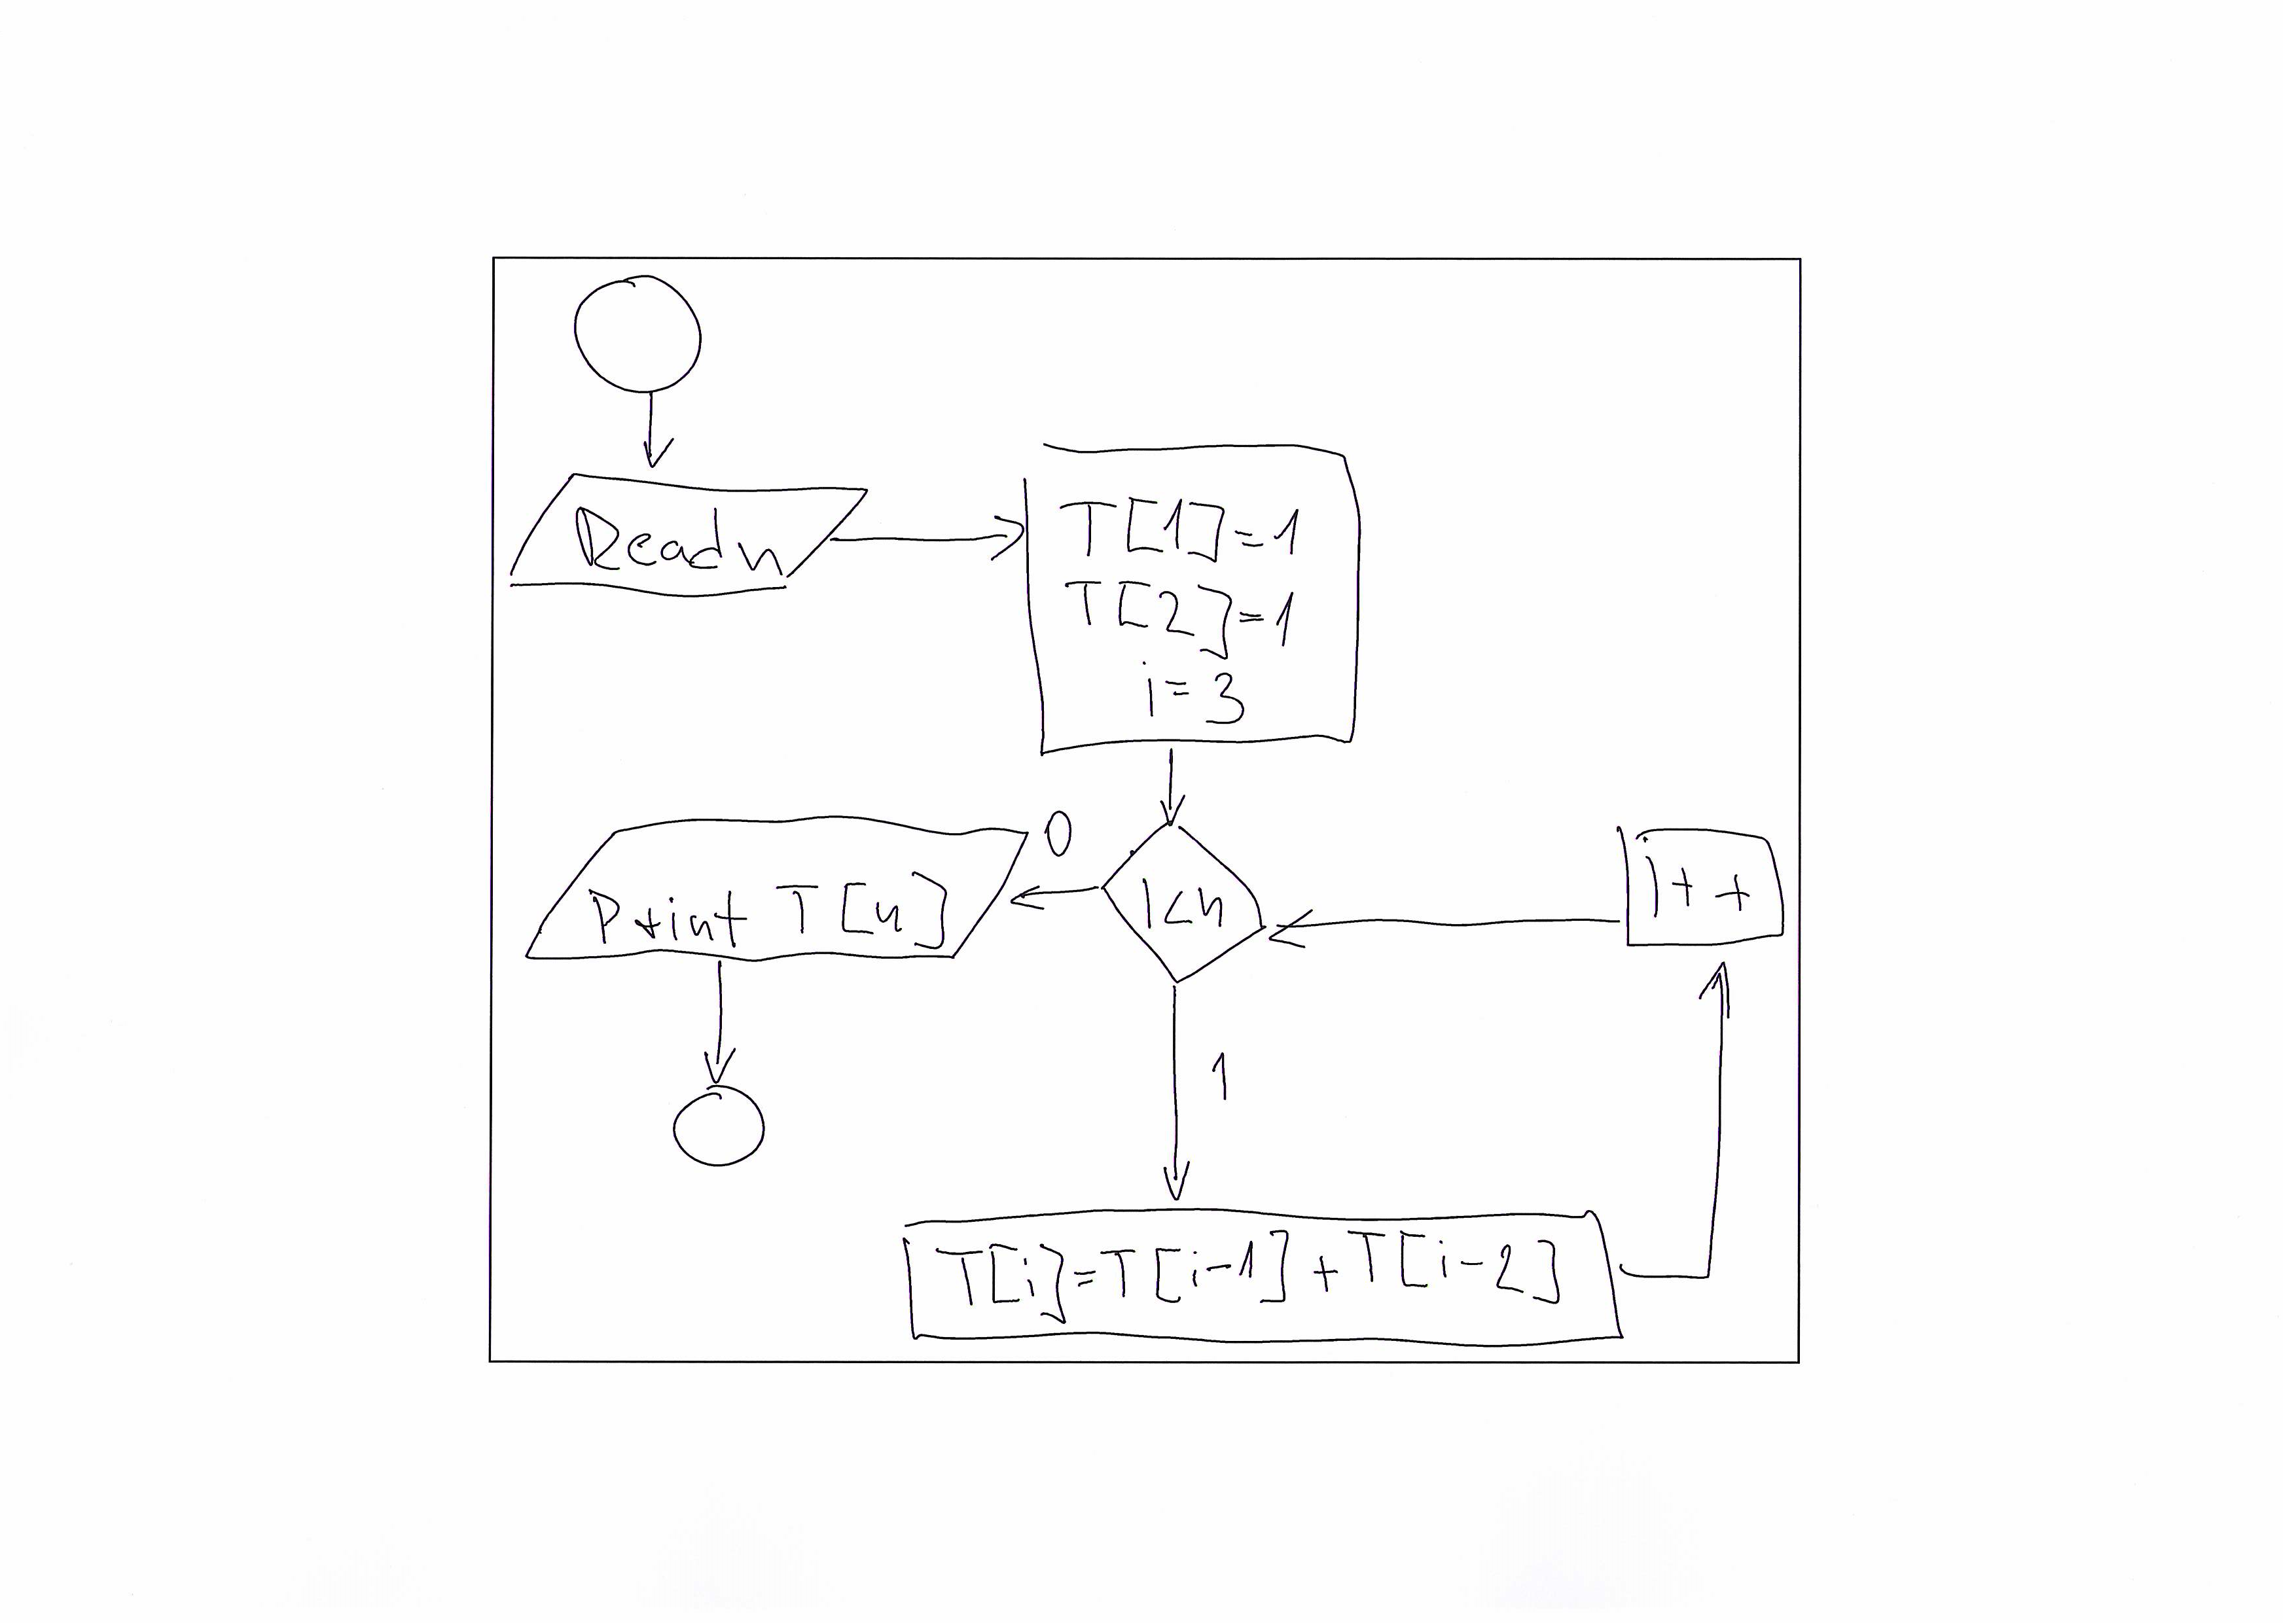 Read n
T[1]=1
T[2]=1
i=3
0
i<n
Print T[n]
i++
1
T[i]=T[i-1]+T[i-2]